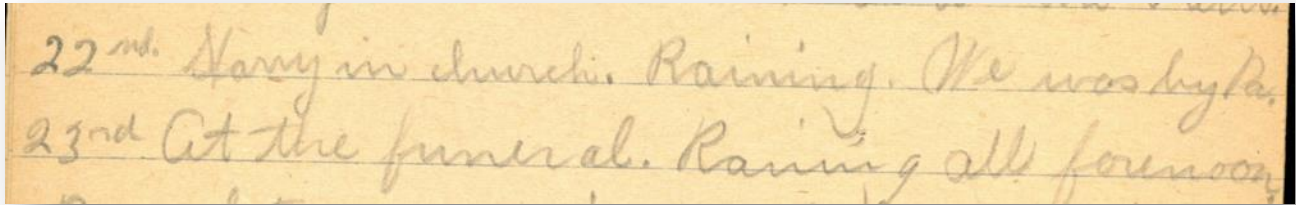 22nd. Harry in church. Raining. We was by Pa.
23rd At the funeral. Raining all forenoon,